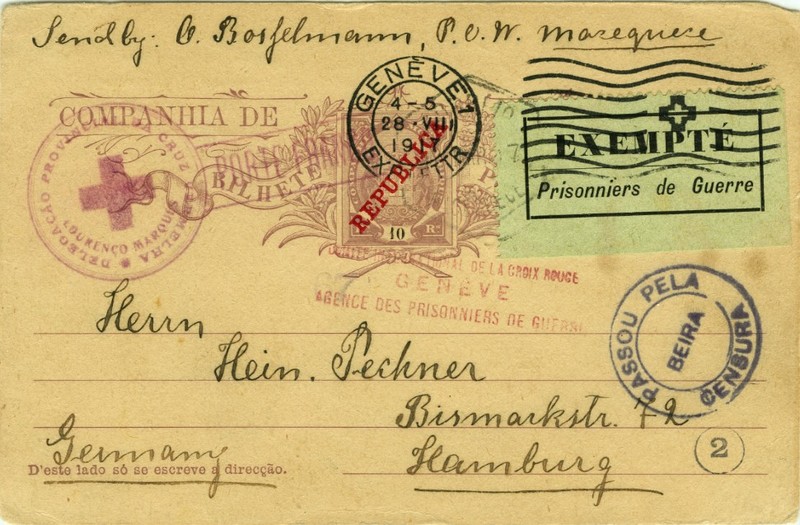 Send by: O. Bosselmann, P.O.W. Macequece
COMPANHIA DE
BILHETE P
PORTE FRANCO
10 Rs
REPUBLICA
GENÈVE 1
4-5
28.VII
1917
EXP. LETTR.
EXEMPTÉ
Prisonniers de Guerre
DELEGAÇÃO PROVINCIAL DA CRUZ VERMELHA
LOURENÇO MARQUES
COMITÉ INTERNATIONAL DE LA CROIX ROUGE
GENÈVE
AGENCE DES PRISONNIERS DE GUERRE
PASSOU PELA CENSURA
BEIRA
Herrn
Hein. Pechner
Bismarkstr. 72
Germany
Hamburg
2
D'este lado só se escreve a direcção.